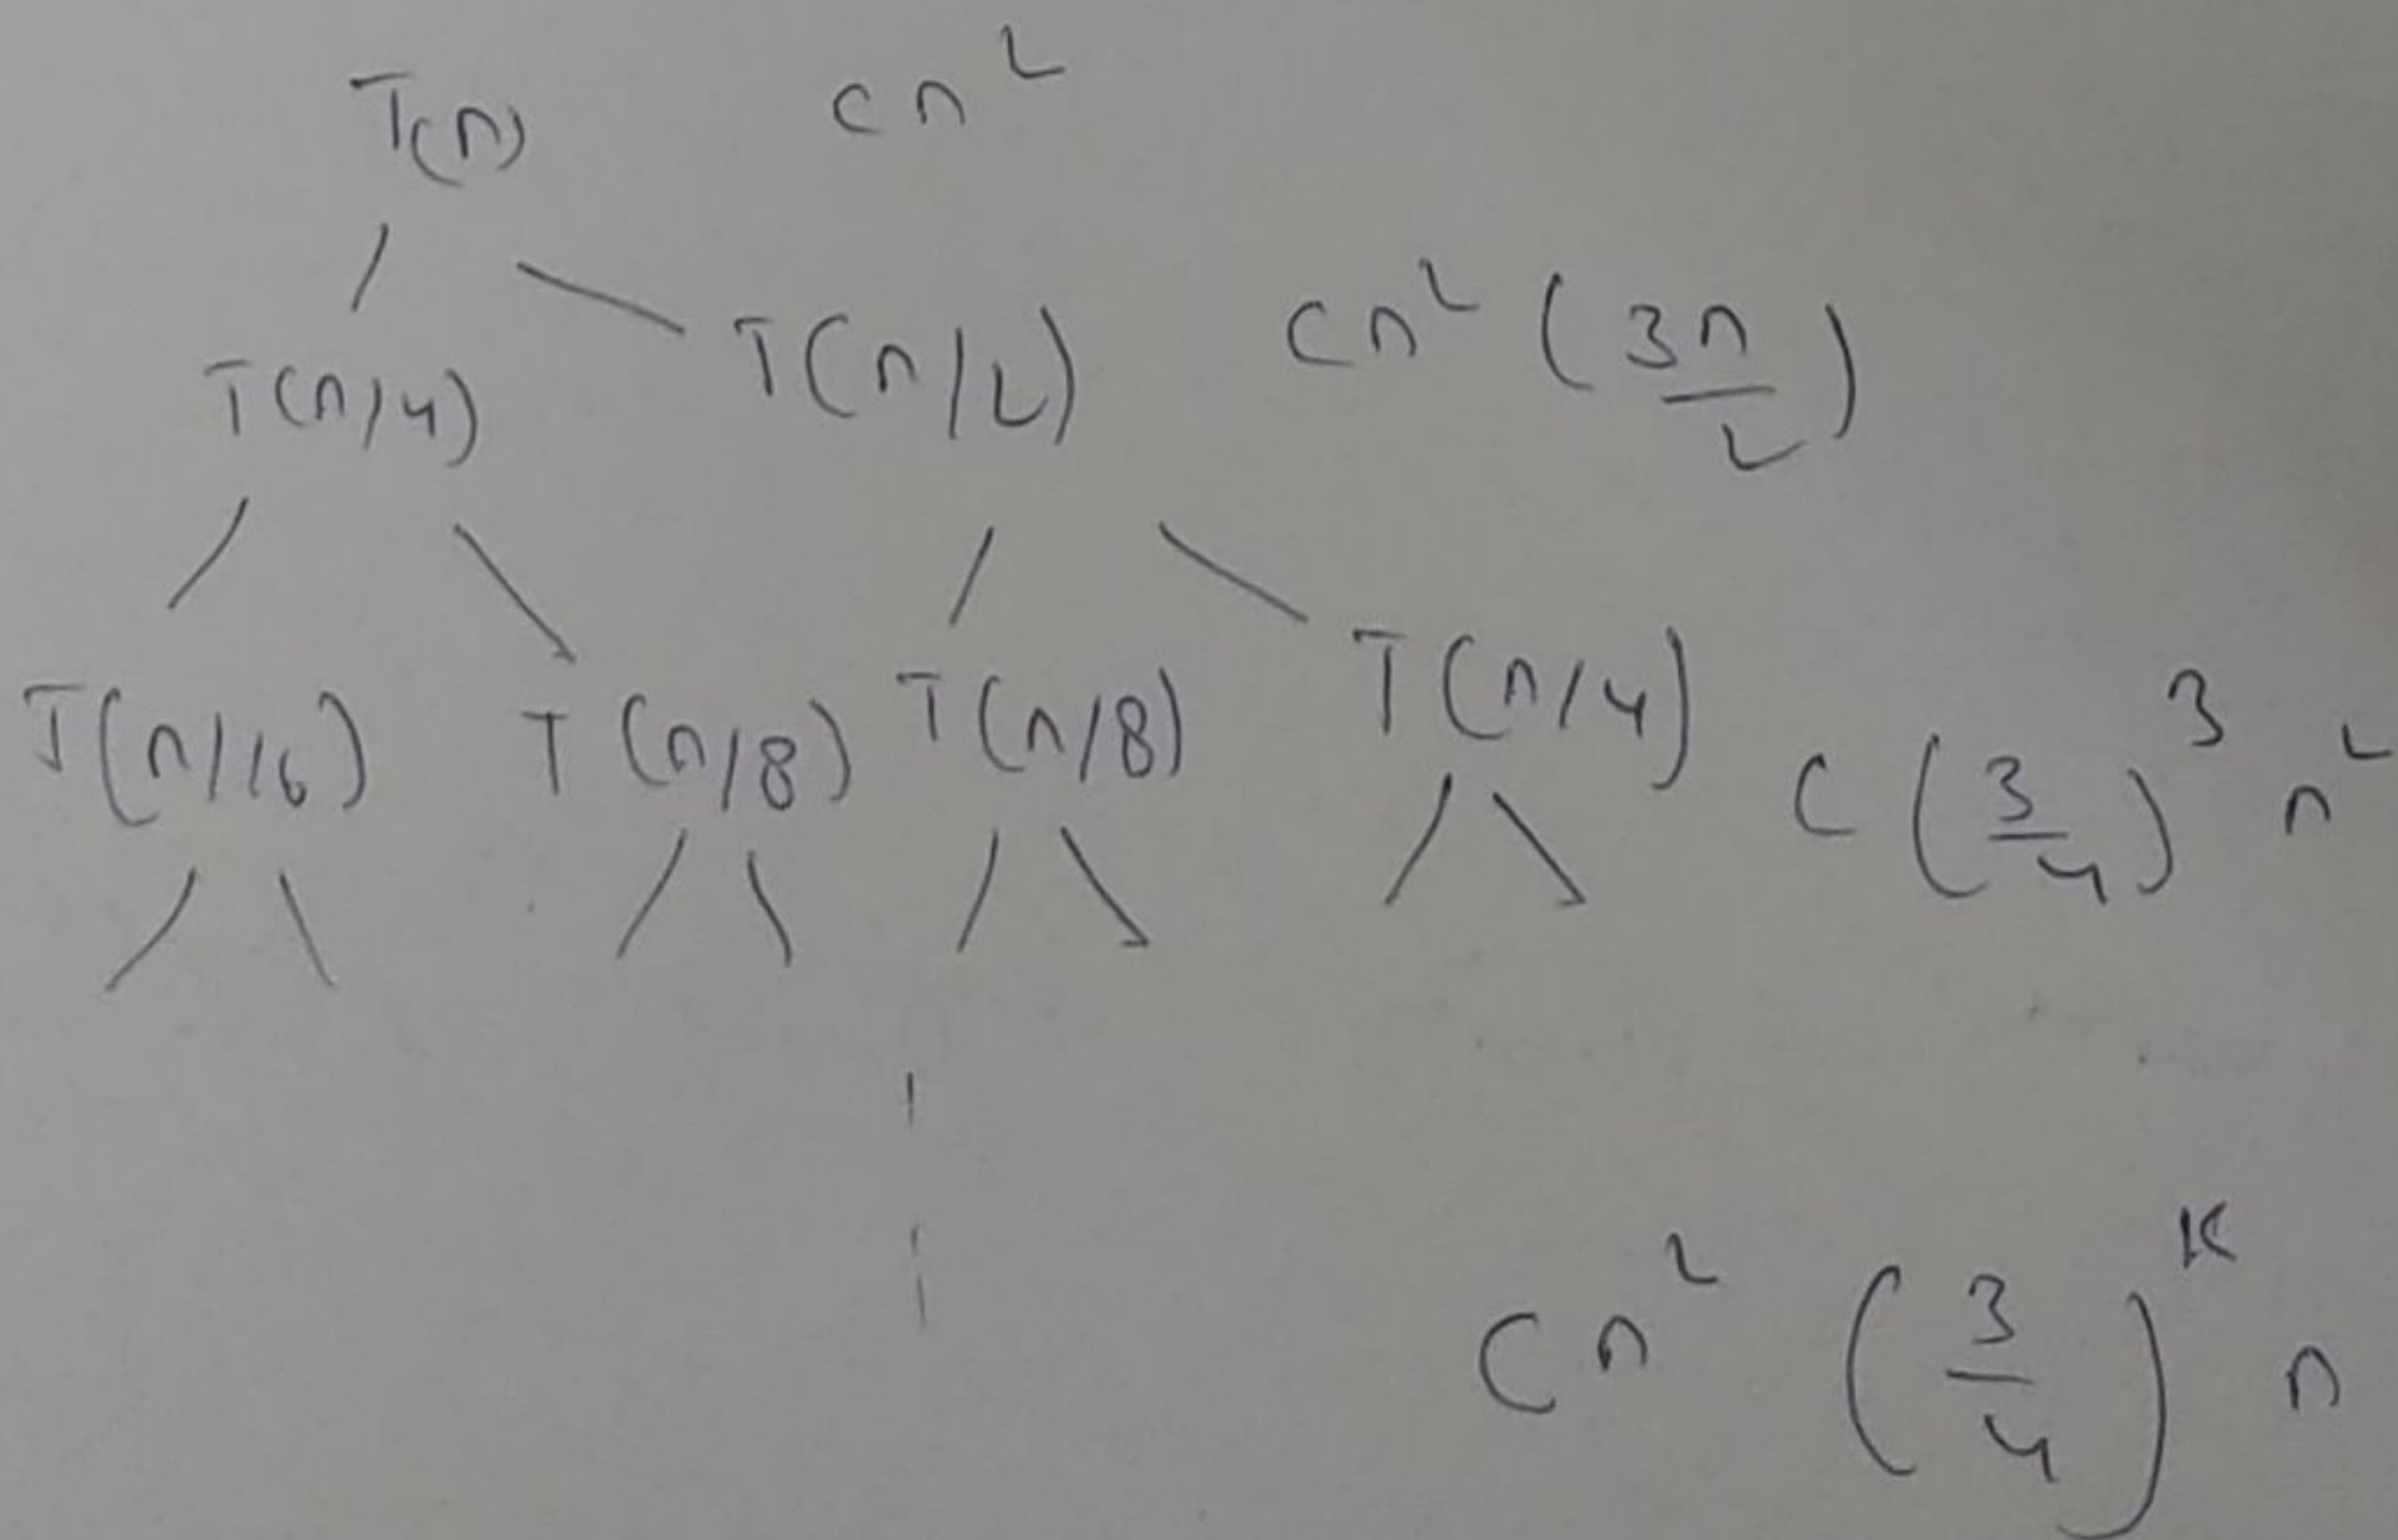 T(n) cn²
T(n/4) T(n/2) cn² (3n/2)
T(n/16) T(n/8) T(n/8) T(n/4) C(3/4)³ n²
Cn² (3/4)ᴷ n